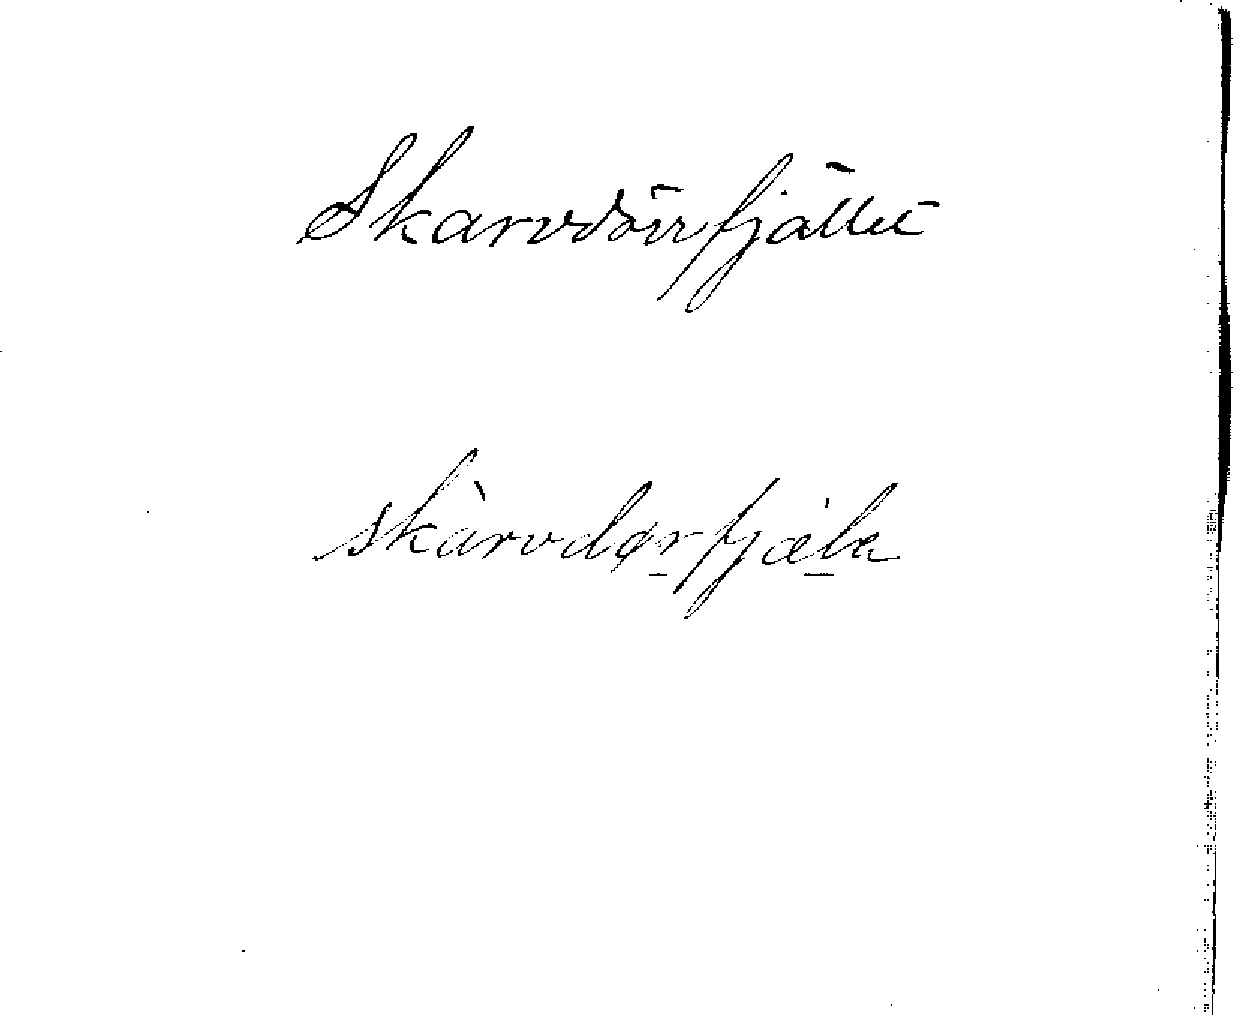 Skarvdörrfjället
skàrvdørfjælа